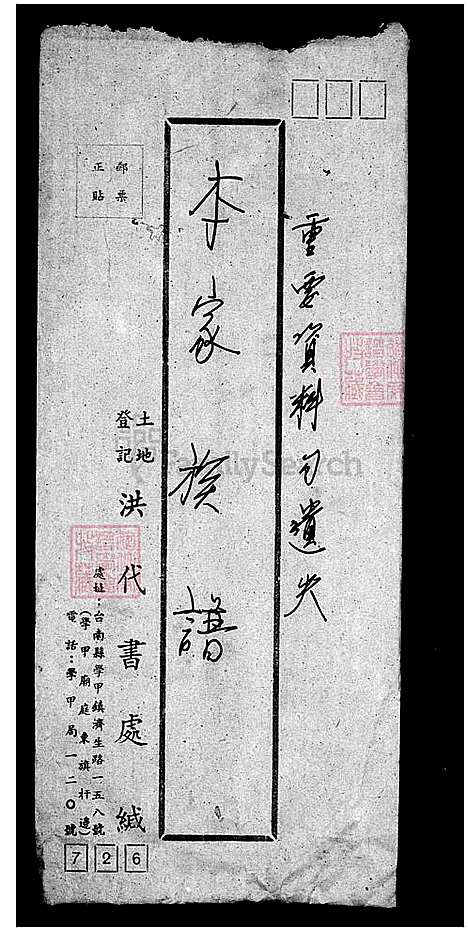 重要資料勿遺失
本家族譜
郵票
正貼
土地
登記
洪代書處緘
處址：台南縣學甲鎮濟生路一五八號
（學甲廟庭東旗杆邊）
電話：學甲局一二〇號
726
FamilySearch